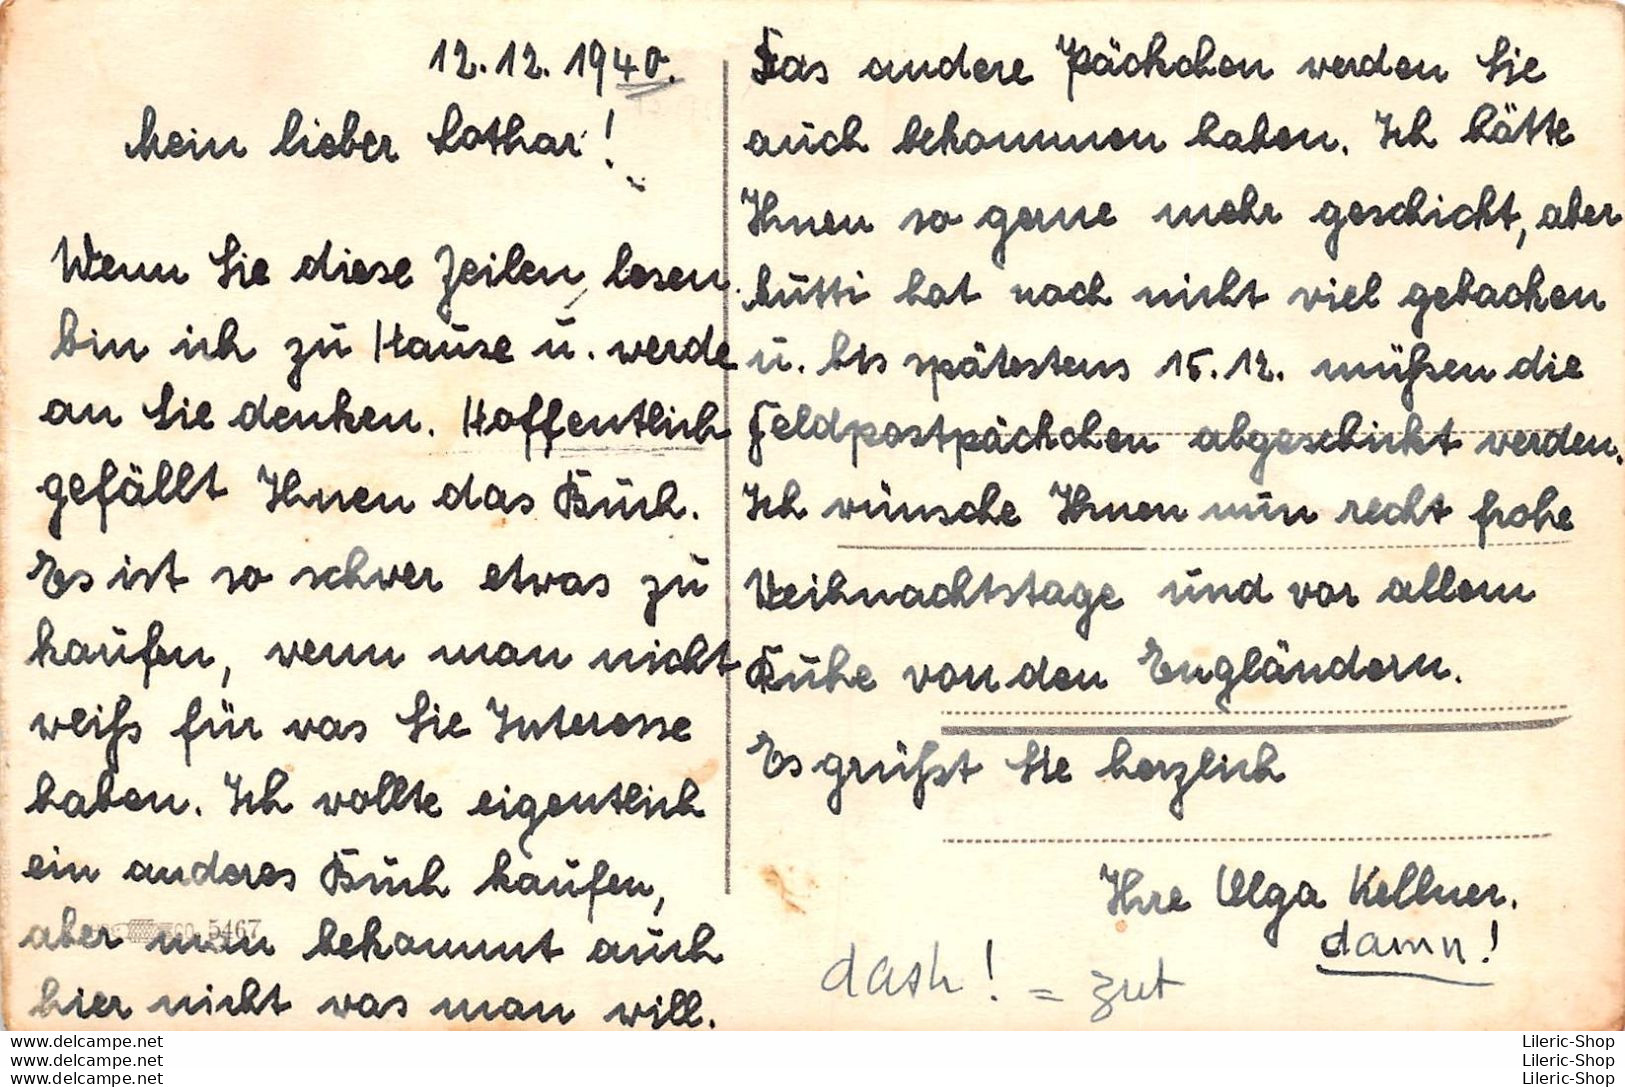 12.12.1940.
Mein lieber Lothar!
Wenn Sie diese Zeilen, lesen
bin ich zu Hause u. werde
an Sie denken. Hoffentlich
gefällt Ihnen das Buch.
Es ist so schwer etwas zu
kaufen, wenn man nicht
weiß für was Sie Interesse
haben. Ich wollte eigentlich
ein anderes Buch kaufen,
aber man bekommt auch
hier nicht was man will.
5467
Das andere Päckchen werden Sie
auch bekommen haben. Ich hätte
Ihnen so gerne mehr geschickt, aber
Mutti hat noch nicht viel gebacken
u. bis spätestens 15.12. müßen die
Feldpostpäckchen abgeschickt werden.
Ich wünsche Ihnen nun recht frohe
Weihnachtstage und vor allem
Ruhe von den Engländern.
Es grüßt Sie herzlich
Ihre Olga Kellner.
damn!
dash! = zut
www.delcampe.net
www.delcampe.net
www.delcampe.net
Lileric-Shop
Lileric-Shop
Lileric-Shop